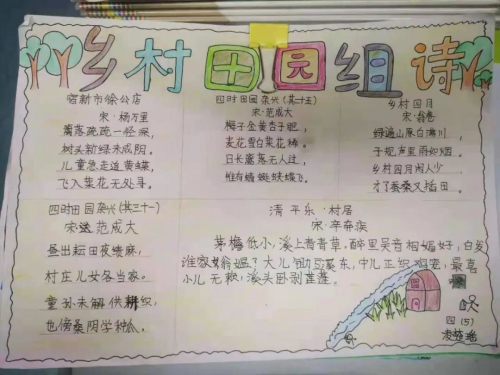 乡村田园组诗
宿新市徐公店
宋·杨万里
篱落疏疏一径深,
树头新绿未成阴。
儿童急走追黄蝶,
飞入菜花无处寻。
四时田园杂兴(其二十五)
宋·范成大
梅子金黄杏子肥,
麦花雪白菜花稀。
日长篱落无人过,
惟有蜻蜓蛱蝶飞。
乡村四月
宋·翁卷
绿遍山原白满川,
子规声里雨如烟。
乡村四月闲人少
才了蚕桑又插田。
四时田园杂兴(其三十一)
宋 范成大
昼出耘田夜绩麻,
村庄儿女各当家。
童孙未解供耕织,
也傍桑阴学种瓜。
清平乐·村居
宋·辛弃疾
茅檐低小,溪上青青草,醉里吴音相媚好,白发
谁家翁媪?大儿锄豆溪东,中儿正织鸡笼,最喜
小儿无赖,溪头卧剥莲蓬。
四(5)